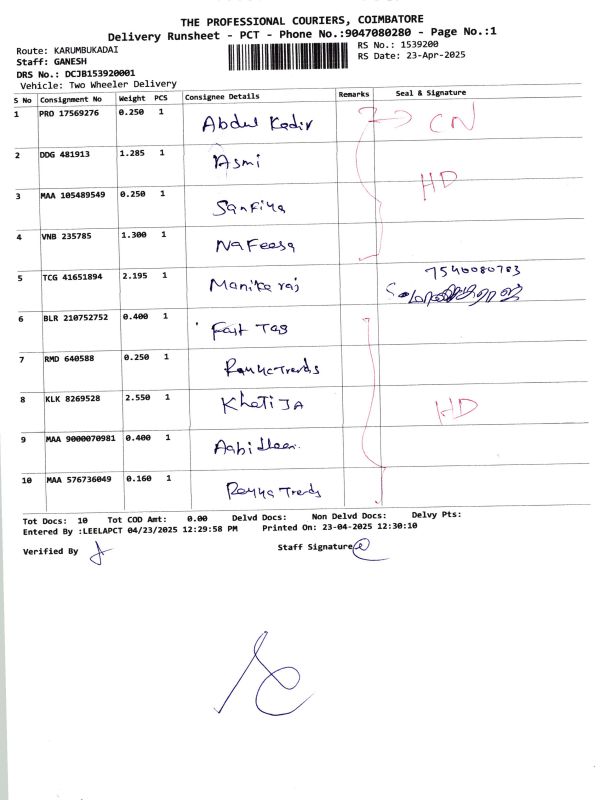 THE PROFESSIONAL COURIERS, COIMBATORE
Delivery Runsheet - PCT - Phone No.:9047080280 - Page No.:1
Route: KARUMBUKADAI
RS No.: 1539200
Staff: GANESH
RS Date: 23-Apr-2025
DRS No.: DCJB153920001
Vehicle: Two Wheeler Delivery
S No Consignment No Weight PCS Consignee Details Remarks Seal & Signature
1 PRO 17569276 0.250 1 Abdul Kadir CN
2 DDG 481913 1.285 1 Asmi
HD
3 MAA 105489549 0.250 1 Sanfiya
4 VNB 235785 1.300 1 Nafeesa
5 TCG 41651894 2.195 1 Manika raj 7540080783
6 BLR 210752752 0.400 1 Fast Tag
7 RMD 640588 0.250 1 Trends
8 KLK 8269528 2.550 1 KhatiJA HD
9 MAA 9000070981 0.400 1
10 MAA 576736049 0.160 1 Trends
Tot Docs: 10 Tot COD Amt: 0.00 Delvd Docs: Non Delvd Docs: Delvy Pts:
Entered By :LEELAPCT 04/23/2025 12:29:58 PM Printed On: 23-04-2025 12:30:10
Verified By Staff Signature